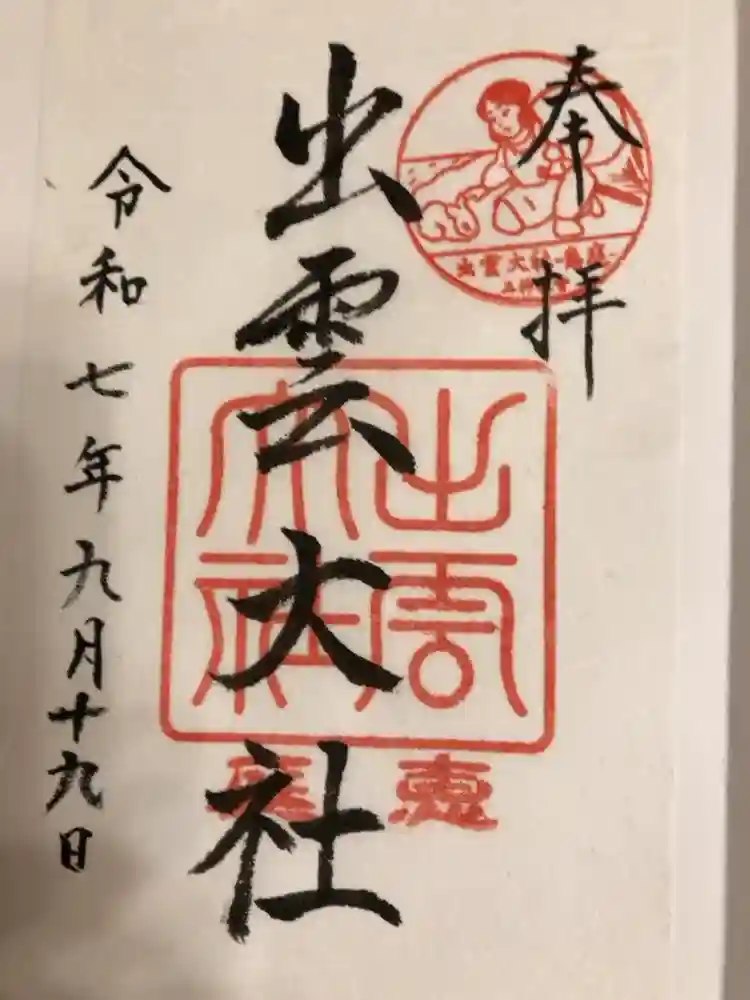 奉拝
出雲大社
出雲
大社
恵
令和七年九月十九日
出雲大社